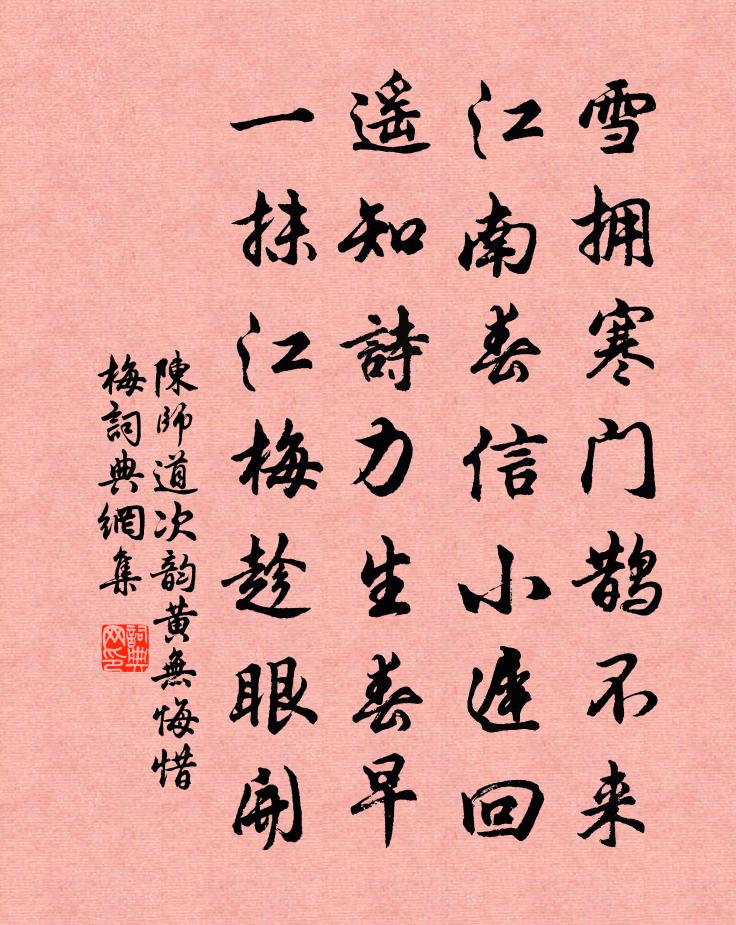 雪拥寒门鹊不来
江南春信小遲回
遥知詩力生春早
一抹江梅趁眼開
陳師道次韵黄無悔惜
梅詞典網集
詞典网印